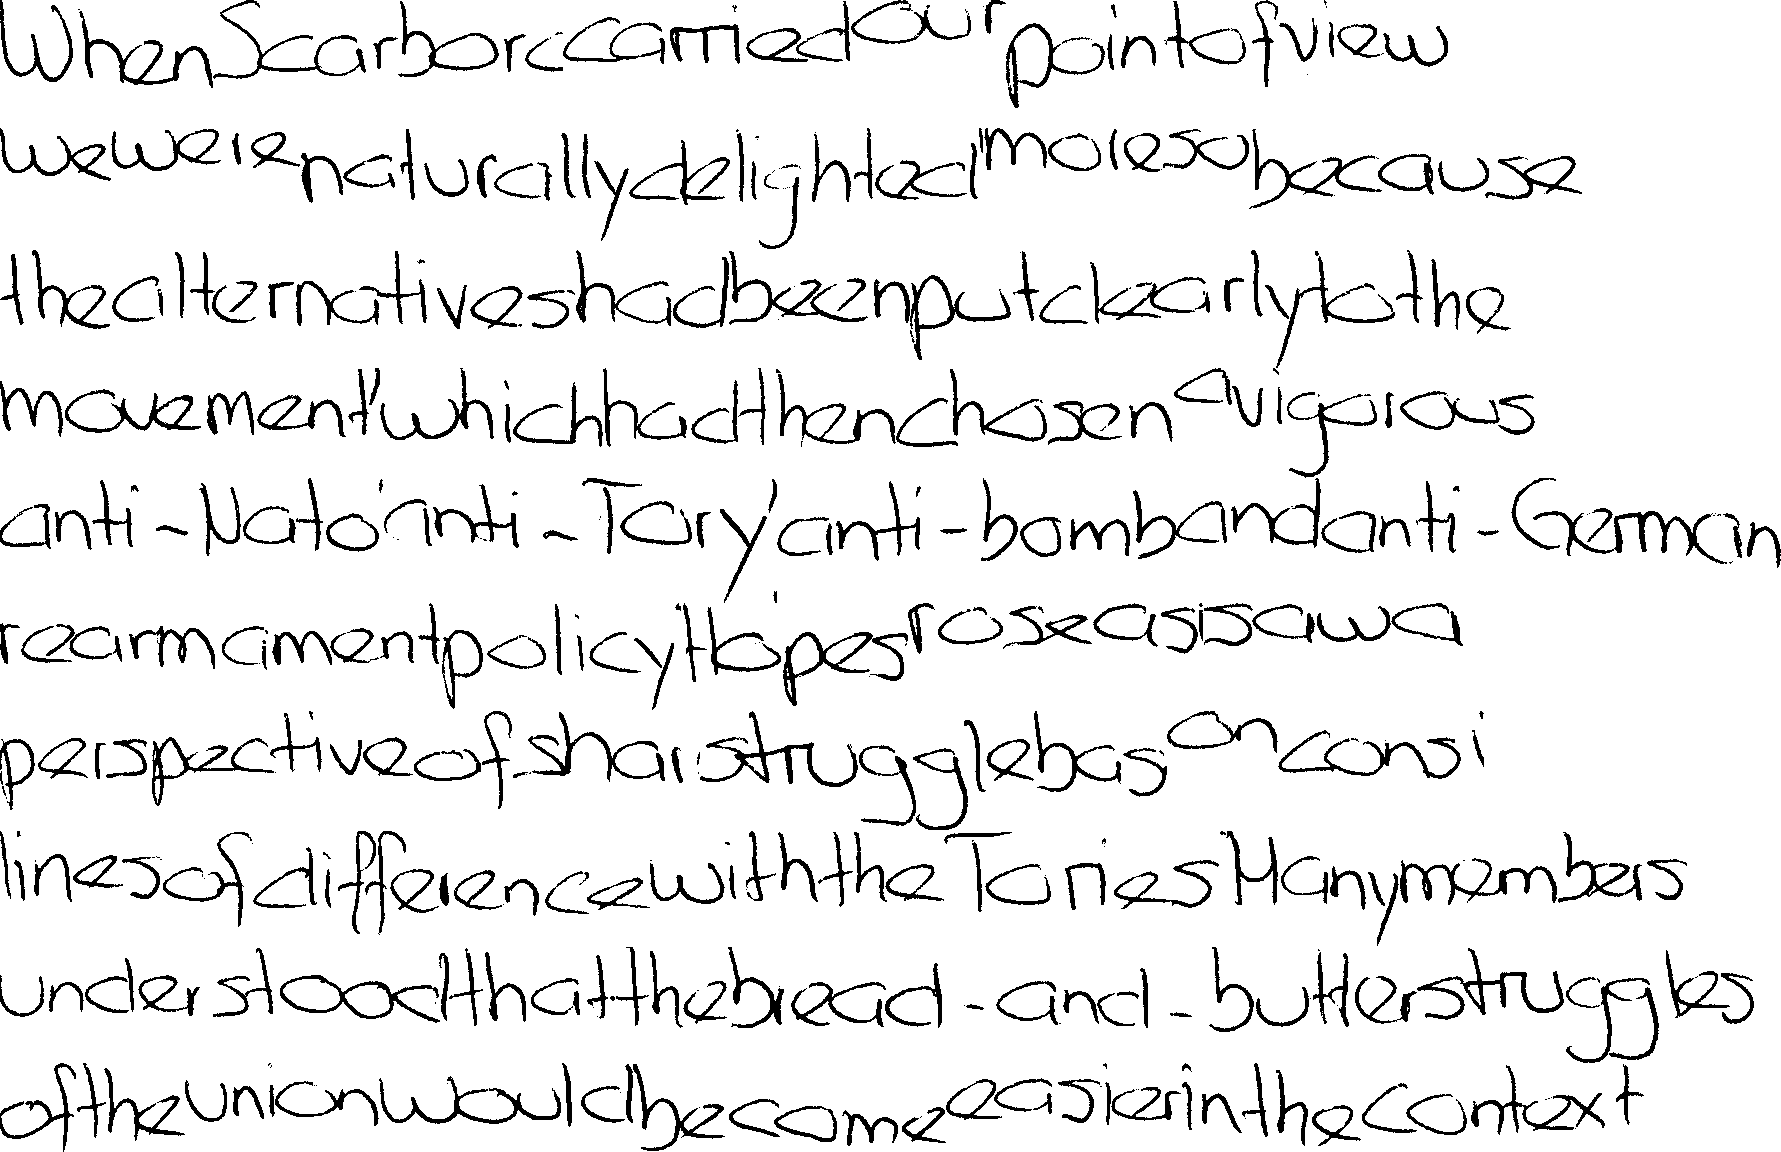 When Scarborc carried our point of view
we were naturally delighted' more so because
the alternatives had been put clearly to the
movement' which had then chosen a vigorous
anti-Nato' anti-Tory' anti-bomb and anti-German
rearmament policy Hopes rose as is saw a
perspective of shar struggle bas on consi
lines of difference with the Tories Many members
understood that the bread-and-butter struggles
of the union would become easier in the context